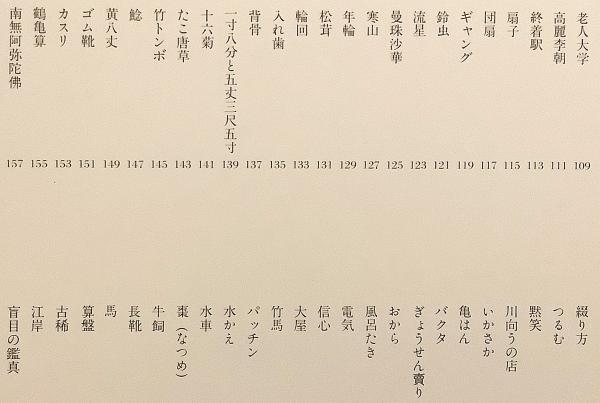 老人大学 109
高麗李朝 111
終着駅 113
扇子 115
団扇 117
ギャング 119
鈴虫 121
流星 123
曼珠沙華 125
寒山 127
年輪 129
松茸 131
輪回 133
入れ歯 135
背骨 137
一寸八分と五丈三尺五寸 139
十六菊 141
たこ唐草 143
竹トンボ 145
鯰 147
黄八丈 149
ゴム靴 151
カスリ 153
鶴亀算 155
南無阿弥陀佛 157
綴り方
つるむ
黙笑
川向うの店
いかさか
亀はん
バクタ
ぎょうせん賣り
おから
風呂たき
電気
信心
大屋
竹馬
パッチン
水かえ
水車
棗（なつめ）
牛飼
長靴
馬
算盤
古稀
江岸
盲目の鑑真